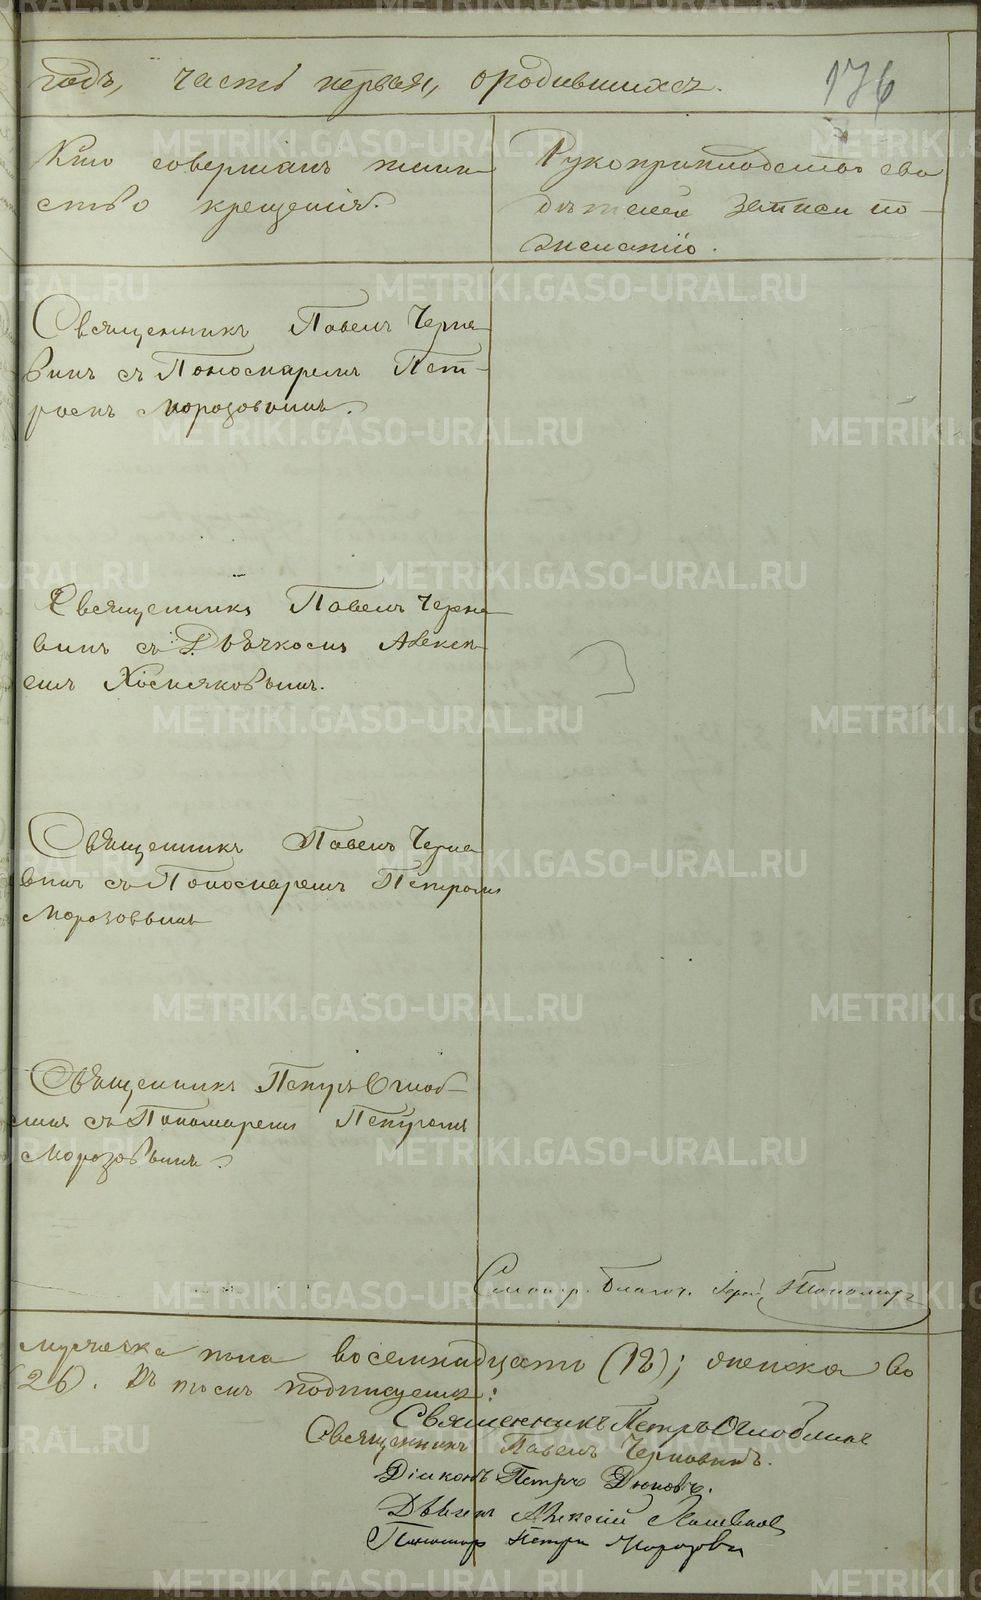 годъ, часть первая, о родившихся.
176
Кто совершалъ таин-
ство крещенія.
Рукоприкладство сви-
дѣтелей записи по
желанію.
Священникъ Павелъ Черня-
винъ съ Пономаремъ Пет-
ромъ Морозовымъ.
Священникъ Павелъ Черня-
винъ съ Дьячкомъ Алексѣ-
емъ Хомяковымъ.
Священникъ Павелъ Черня-
винъ съ Пономаремъ Петромъ
Морозовымъ
Священникъ Петръ Оглоб-
линъ съ Пономаремъ Петромъ
Морозовымъ.
Смотр. Благоч.
мужеска пола восемнадцать (18); женска
(26). Въ томъ подписуемся:
Священникъ Петръ Оглоблинъ
Священникъ Павелъ Чернявинъ.
Діаконъ Петръ
Дьячекъ Алексій
Пономарь Петръ Морозовъ
METRIKI.GASO-URAL.RU